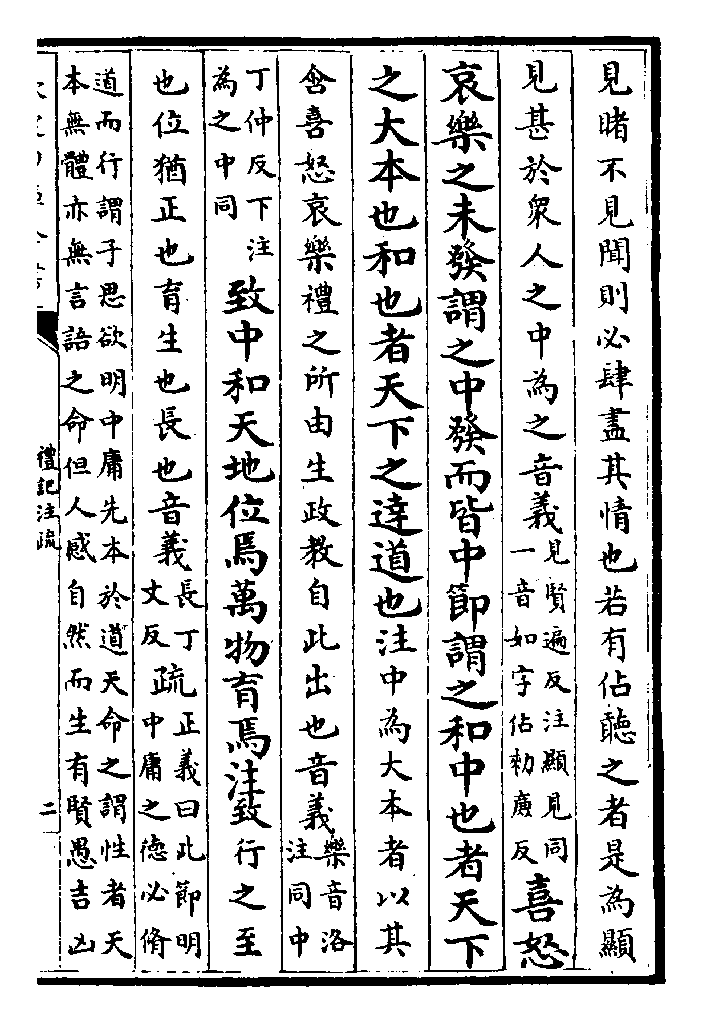 見睹不見聞則必肆盡其情也若有佔聽之者是為顯
見甚於衆人之中為之音義見賢遍反注顯見同一音如字佔勑廉反喜怒
哀樂之未發謂之中發而皆中節謂之和中也者天下
之大本也和也者天下之逹道也注中為大本者以其
含喜怒哀樂禮之所由生政教自此出也音義樂音洛注同中
丁仲反下注為之中同致中和天地位焉萬物育焉注致行之至
也位猶正也育生也長也音義長丁丈反疏正義曰此節明中庸之德必脩
道而行謂子思欲明中庸先本於道天命之謂性者天
本無體亦無言語之命但人感自然而生有賢愚吉凶
禮記注疏
二